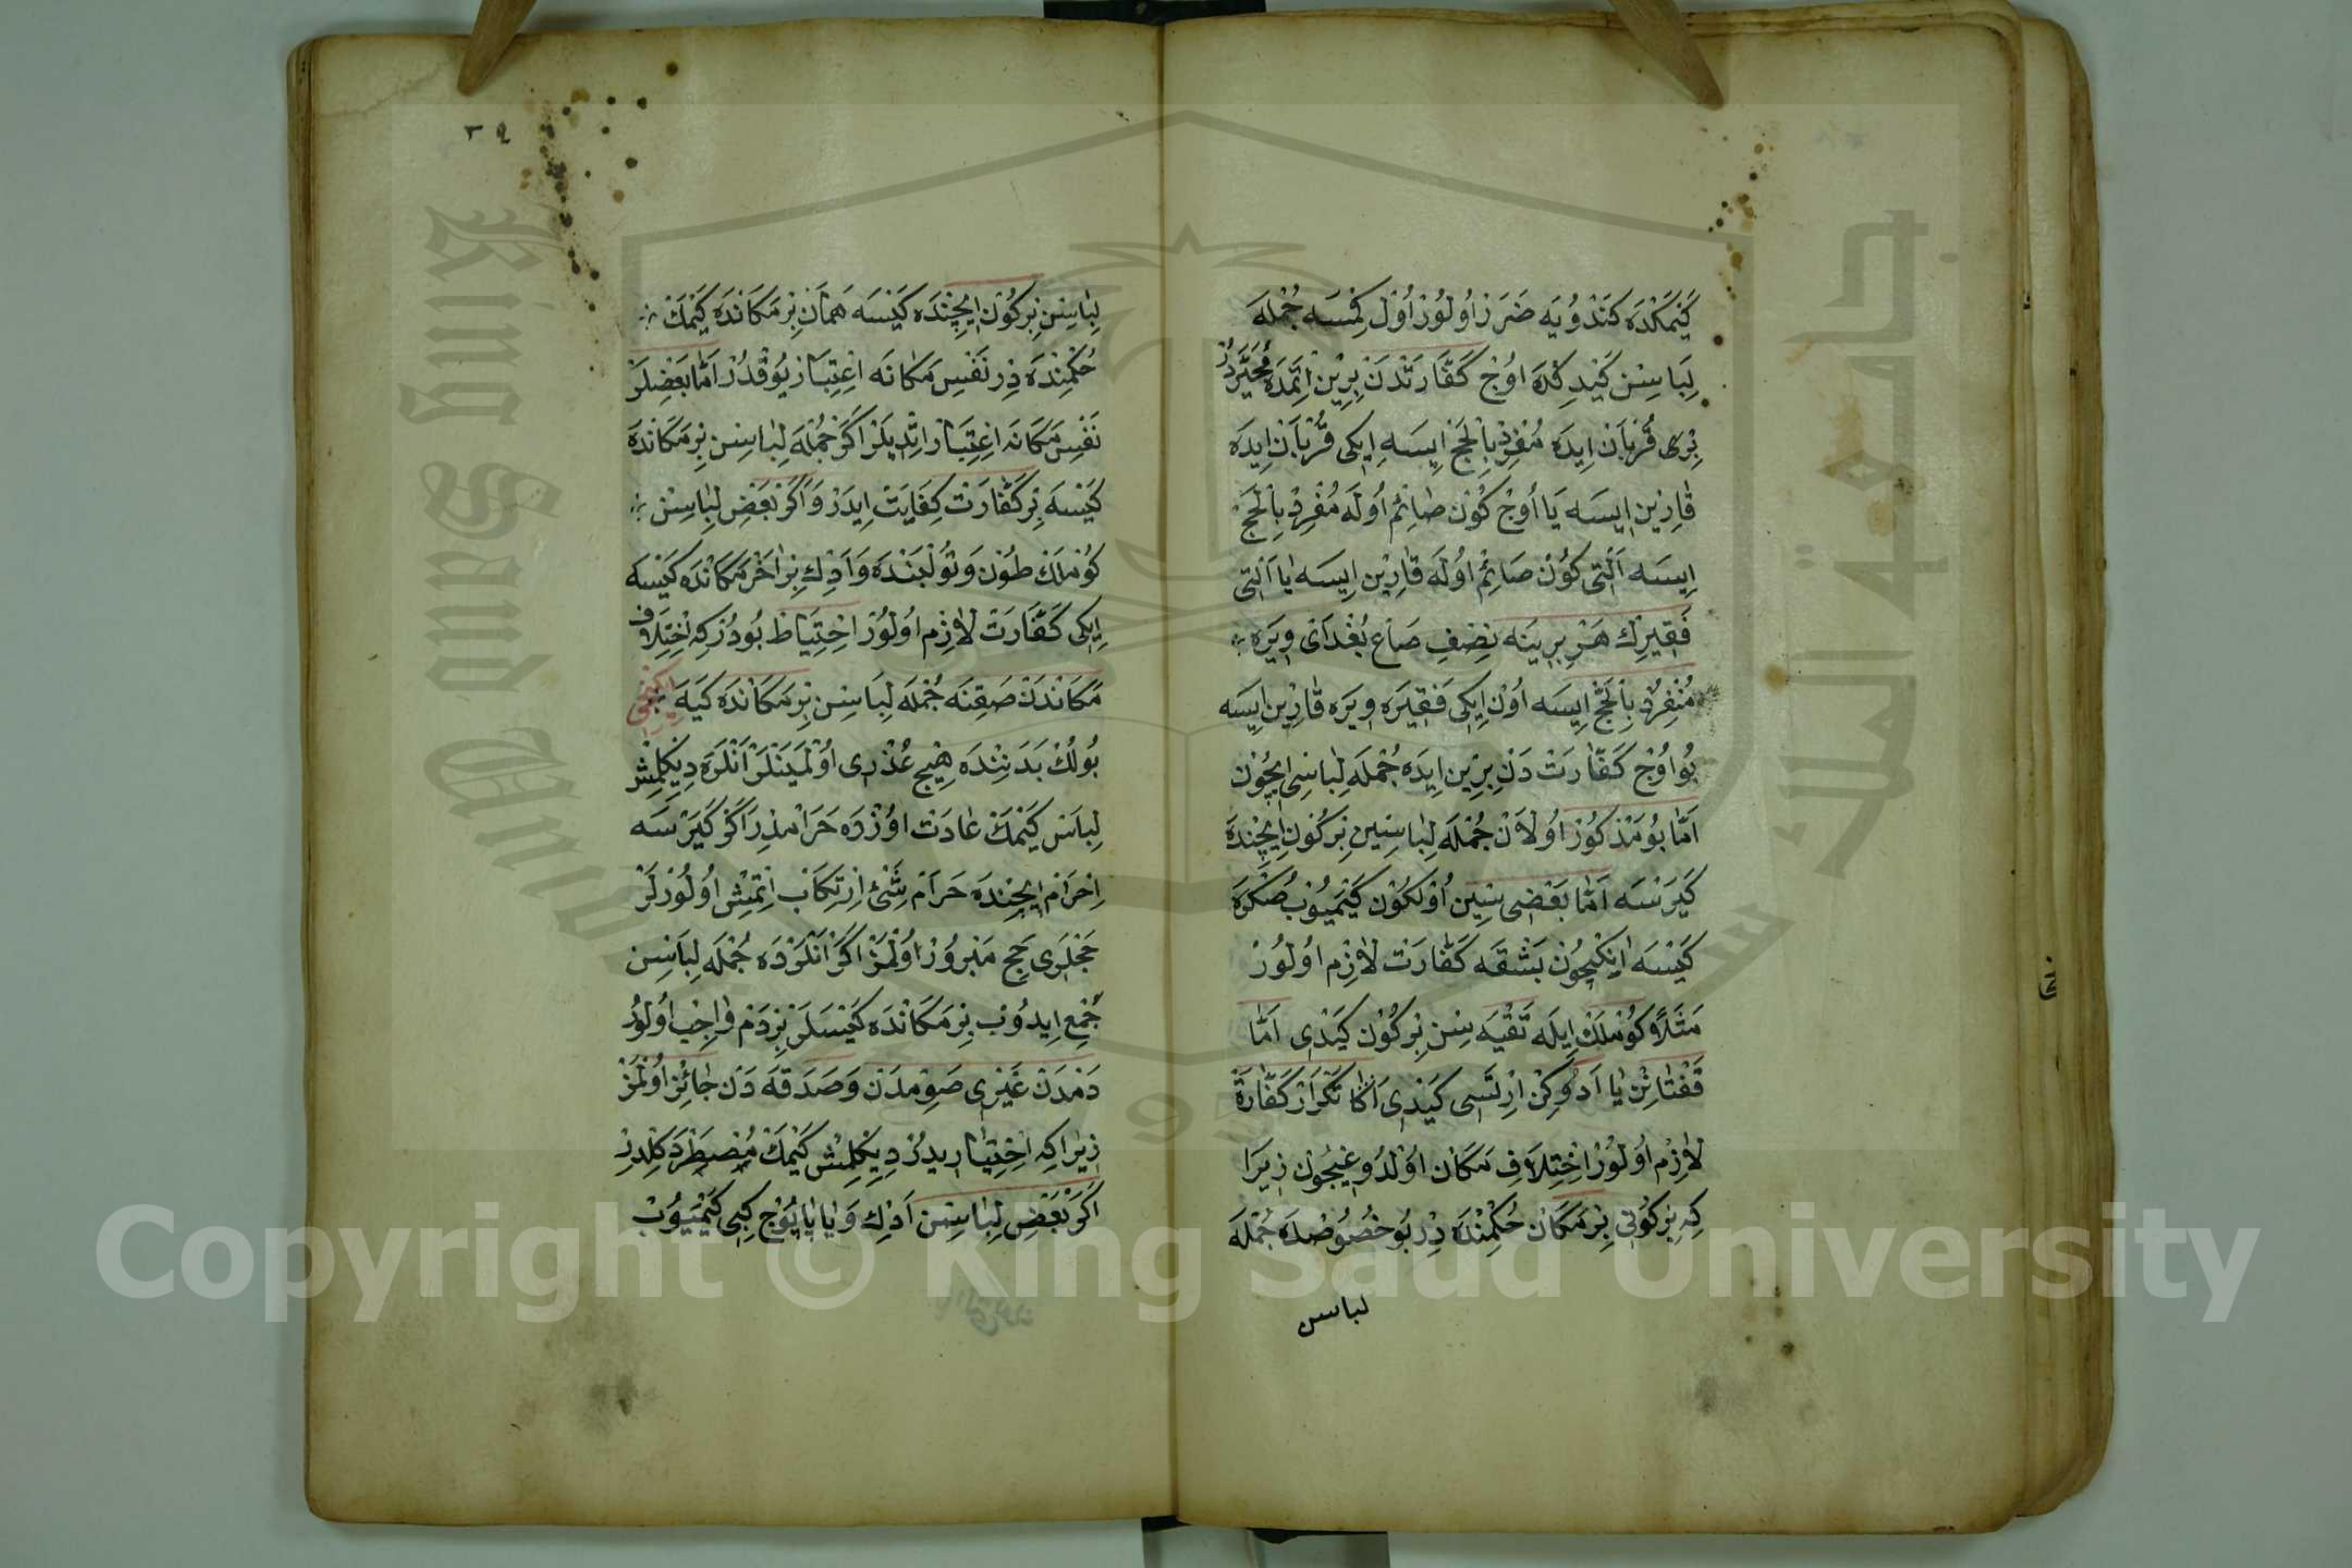 كَيْمَكْدَه كَنْدُويَه ضَرَرْ اُولُورْ اُولْ كِمْسَه جُمْلَه
لِبَاسِنْ كَيْدِكْدَه اوُچْ كَفَّارَتْدَنْ بِرِيْنْ اِتْمَدَه مُخَيَّرْدُرْ
بِرِى قُرْبَانْ اِيدَه مُنْفِرِدْ بِالْحَجْ اِيسَه اِيكِى قُرْبَانْ اِيدَه
قَارِيْن اِيسَه يَا اُوچْ كُونْ صَائِمْ اُولَه مُفْرِدْ بِالْحَجْ
اِيسَه اَلْتِى كُونْ صَائِمْ اوُلَه قَارِيْن اِيسَه يَا اَلْتِى
فَقِيرِكْ هَرْ بِرِينَه نِصْفِ صَاعْ بُغْدَاىْ وِيرَه
مُنْفِرِدْ بِالْحَجْ اِيسَه اُونْ اِيكِى فَقِيرَه وِيرَه قَارِيْن اِيسَه
بُو اوُچْ كَفَّارَتْ دَنْ بِرِيْن اِيدَه جُمْلَه لِبَاسِى اِيچُونْ
اَمَّا بُو مَذْكُورْ اُولَانْ جُمْلَه لِبَاسِنِينْ بِرْ كُونْ اِيچِنْدَه
كَيَرْسَه اَمَّا بَعْضِى سِنِينْ اُولْكُونْ كَيْمَيُوبْ صُكْرَه
كَيْسَه اَنِكْيچُونْ بَشْقَه كَفَّارَتْ لَازِمْ اُولُورْ
مَثَلًا كُوْمْلَكْ اِيلَه تَقْيَه سِنْ بِرْ كُونْ كَيْدِى اَمَّا
قَفْتَانِنْ يَا اَدْوِكِنْ اِرْتَسِى كَيْدِى اَكَا تَكْرَارْ كَفَّارَة
لَازِمْ اُولُورْ اِخْتِلَافِ مَكَانْ اوُلْدُوغِيچُونْ زِيرَا
كِه بِرْ كُونِى بِرْ مَكَانْ حُكْمِنْدَه دِرْ بُو خُصُوصْدَه جُمْلَه
لباسن
٣٩
لِبَاسِنْ بِرْ كُونْ اِيچِنْدَه كَيْسَه هَمَانْ بِرْ مَكَانْدَه كَيْمَكْ
حُكْمِنْدَه دِرْ نَفْسِ مَكَانَه اعْتِبَارْ يُوقْدُرْ اَمَّا بَعْضِلَرْ
نَفْسِ مَكَانَه اِعْتِبَارْ اِتْدِيلَرْ اَكَرْ جُمْلَه لِبَاسِنْ بِرْ مَكَانْدَه
كَيْسَه بِرْ كَفَّارَتْ كِفَايَتْ اِيدَرْ وَاَكَرْ بَعْضِ لِبَاسِنْ
كُوْمْلَكْ طُونْ وَتُولْبَنْدَه وَاَدْكِ بِرْ اٰخَرْ مَكَانْدَه كَيْسَه
اِيكِى كَفَّارَتْ لَازِمْ اوُلُورْ اِحْتِيَاطْ بُودُرْ كِه اِخْتِلَافِ
مَكَانْدَنْ صَقِنَه جُمْلَه لِبَاسِنْ بِرْ مَكَانْدَه كَيَه
بُولُكْ بَدَنِنْدَه هِيچْ عُذْرِى اوُلْمَيَنْلَرْ اَنْلَرَه دِيكِلْمِشْ
لِبَاسْ كَيْمَكْ عَادَتْ اوُزْرَه حَرَامْدِرْ اَكَرْ كَيَرْسَه
اِحْرَامْ اِيچِنْدَه حَرَامْ شَىْءْ اِرْتِكَابْ اِتْمِشْ اُولُورْلَرْ
حَجْلَرِى حَجِ مَبْرُورْ اوُلْمَزْ اَكَرْ اَنْلَرْدَه جُمْلَه لِبَاسِنْ
جَمْعْ اِيدُوبْ بِرْ مَكَانْدَه كَيْسَلَرْ بِرْ دَمْ وَاجِبْ اُولُورْ
دَمْدَنْ غَيْرِى صَوْمدَنْ وَصَدَقَه دَنْ جَائِزْ اوُلْمَزْ
زِيرَا كِه اِخْتِيَارِيدُرْ دِيكِلْمِشْ كَيْمَكْ مُضْطَرْ دَكِلْدِرْ
اَكَرْ بَعْضِ لِبَاسِنْ اَدْكِ وَيَا پَاپُوجْ كِبِى كَيْمَيُوبْ
Copyright © King Saud University
King Saud University
جامعة الملك سعود